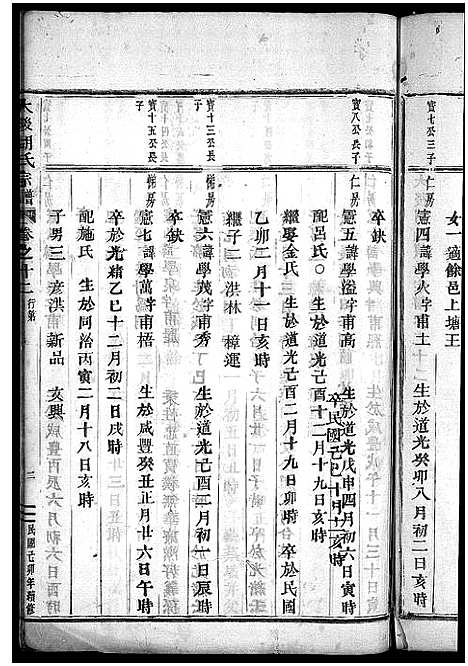 女一適餘邑上塘王
寳七公三子
仁易
憲四諱學火字甫土 生於道光癸卯八月初二日亥時
卒缺
寳八公長子
仁易
憲五諱學溢字甫高 生於道光戊申四月初六日亥時
卒民國己巳十月十二亥時
配呂氏〇 生於道光己酉十二月十九日亥時
繼娶金氏三 生於道光己酉二月十九日卯時 卒於民國
乙卯二月十一日亥時
繼子二 洪林 樟運
寳十三公長子
悌易
憲六諱學茂字甫秀 生於道光己酉二月初一日辰時
卒缺
寳十五公長子
悌易
憲七諱學萬字甫梧 生於咸豐癸丑正月廿六日午時
卒於光緒乙巳十二月初二日戌時
配施氏 生於同治丙寅二月十八日亥時
子男三 彦洪 新品 亥興
大後胡氏宗譜
卷之十二
行第
三
民國己卯年續修